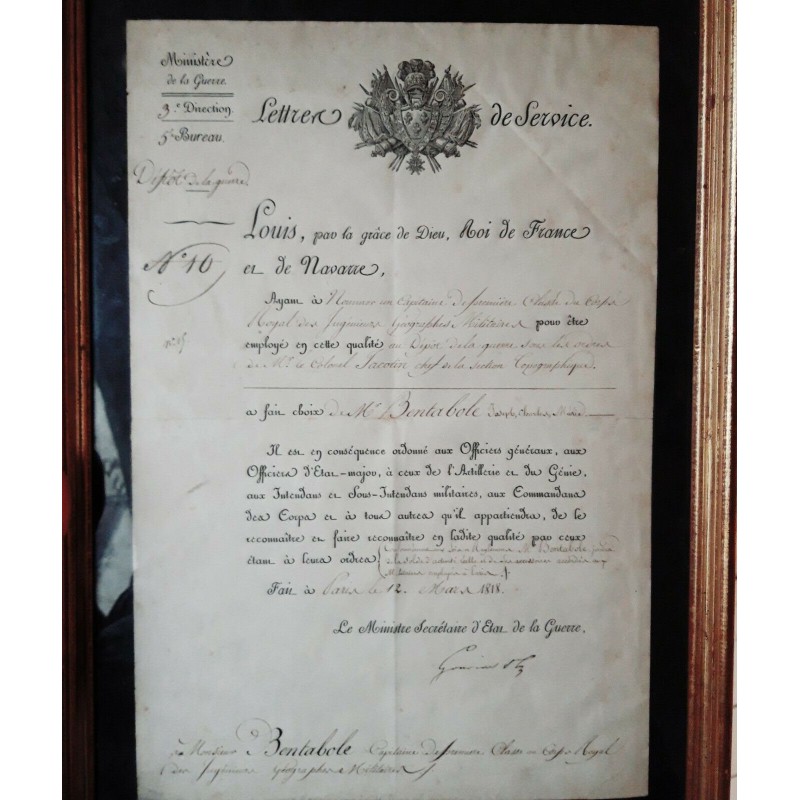 Ministère
de la Guerre.
3.e Direction.
5e Bureau.
Dépôt de la guerre
Lettres de Service.
N.o 16
Louis, par la grâce de Dieu, Roi de France
et de Navarre,
Ayant à Nommer un Capitaine de première Classe du Corps
Royal des Ingénieurs Géographes Militaires pour être
employé en cette qualité au Dépôt de la guerre sous les ordres
de Mr. le Colonel Jacotin chef de la Section Topographique.
a fait choix de Mr. Bentabole Joseph Charles Marie
Il est en conséquence ordonné aux Officiers généraux, aux
Officiers d'Etat-major, à ceux de l'Artillerie et du Génie,
aux Intendans et Sous-Intendans militaires, aux Commandans
des Corps et à tous autres qu'il appartiendra, de le
reconnaître et faire reconnaître en ladite qualité par ceux
étant à leurs ordres Mr Bentabole
de la Solde
Militaires employés à
Fait à Paris le 12 Mars 1818.
Le Ministre Secrétaire d'Etat de la Guerre,
Gouvion St Cyr
à Monsieur Bentabole Capitaine de première Classe au Corps Royal
des Ingénieurs géographes Militaires